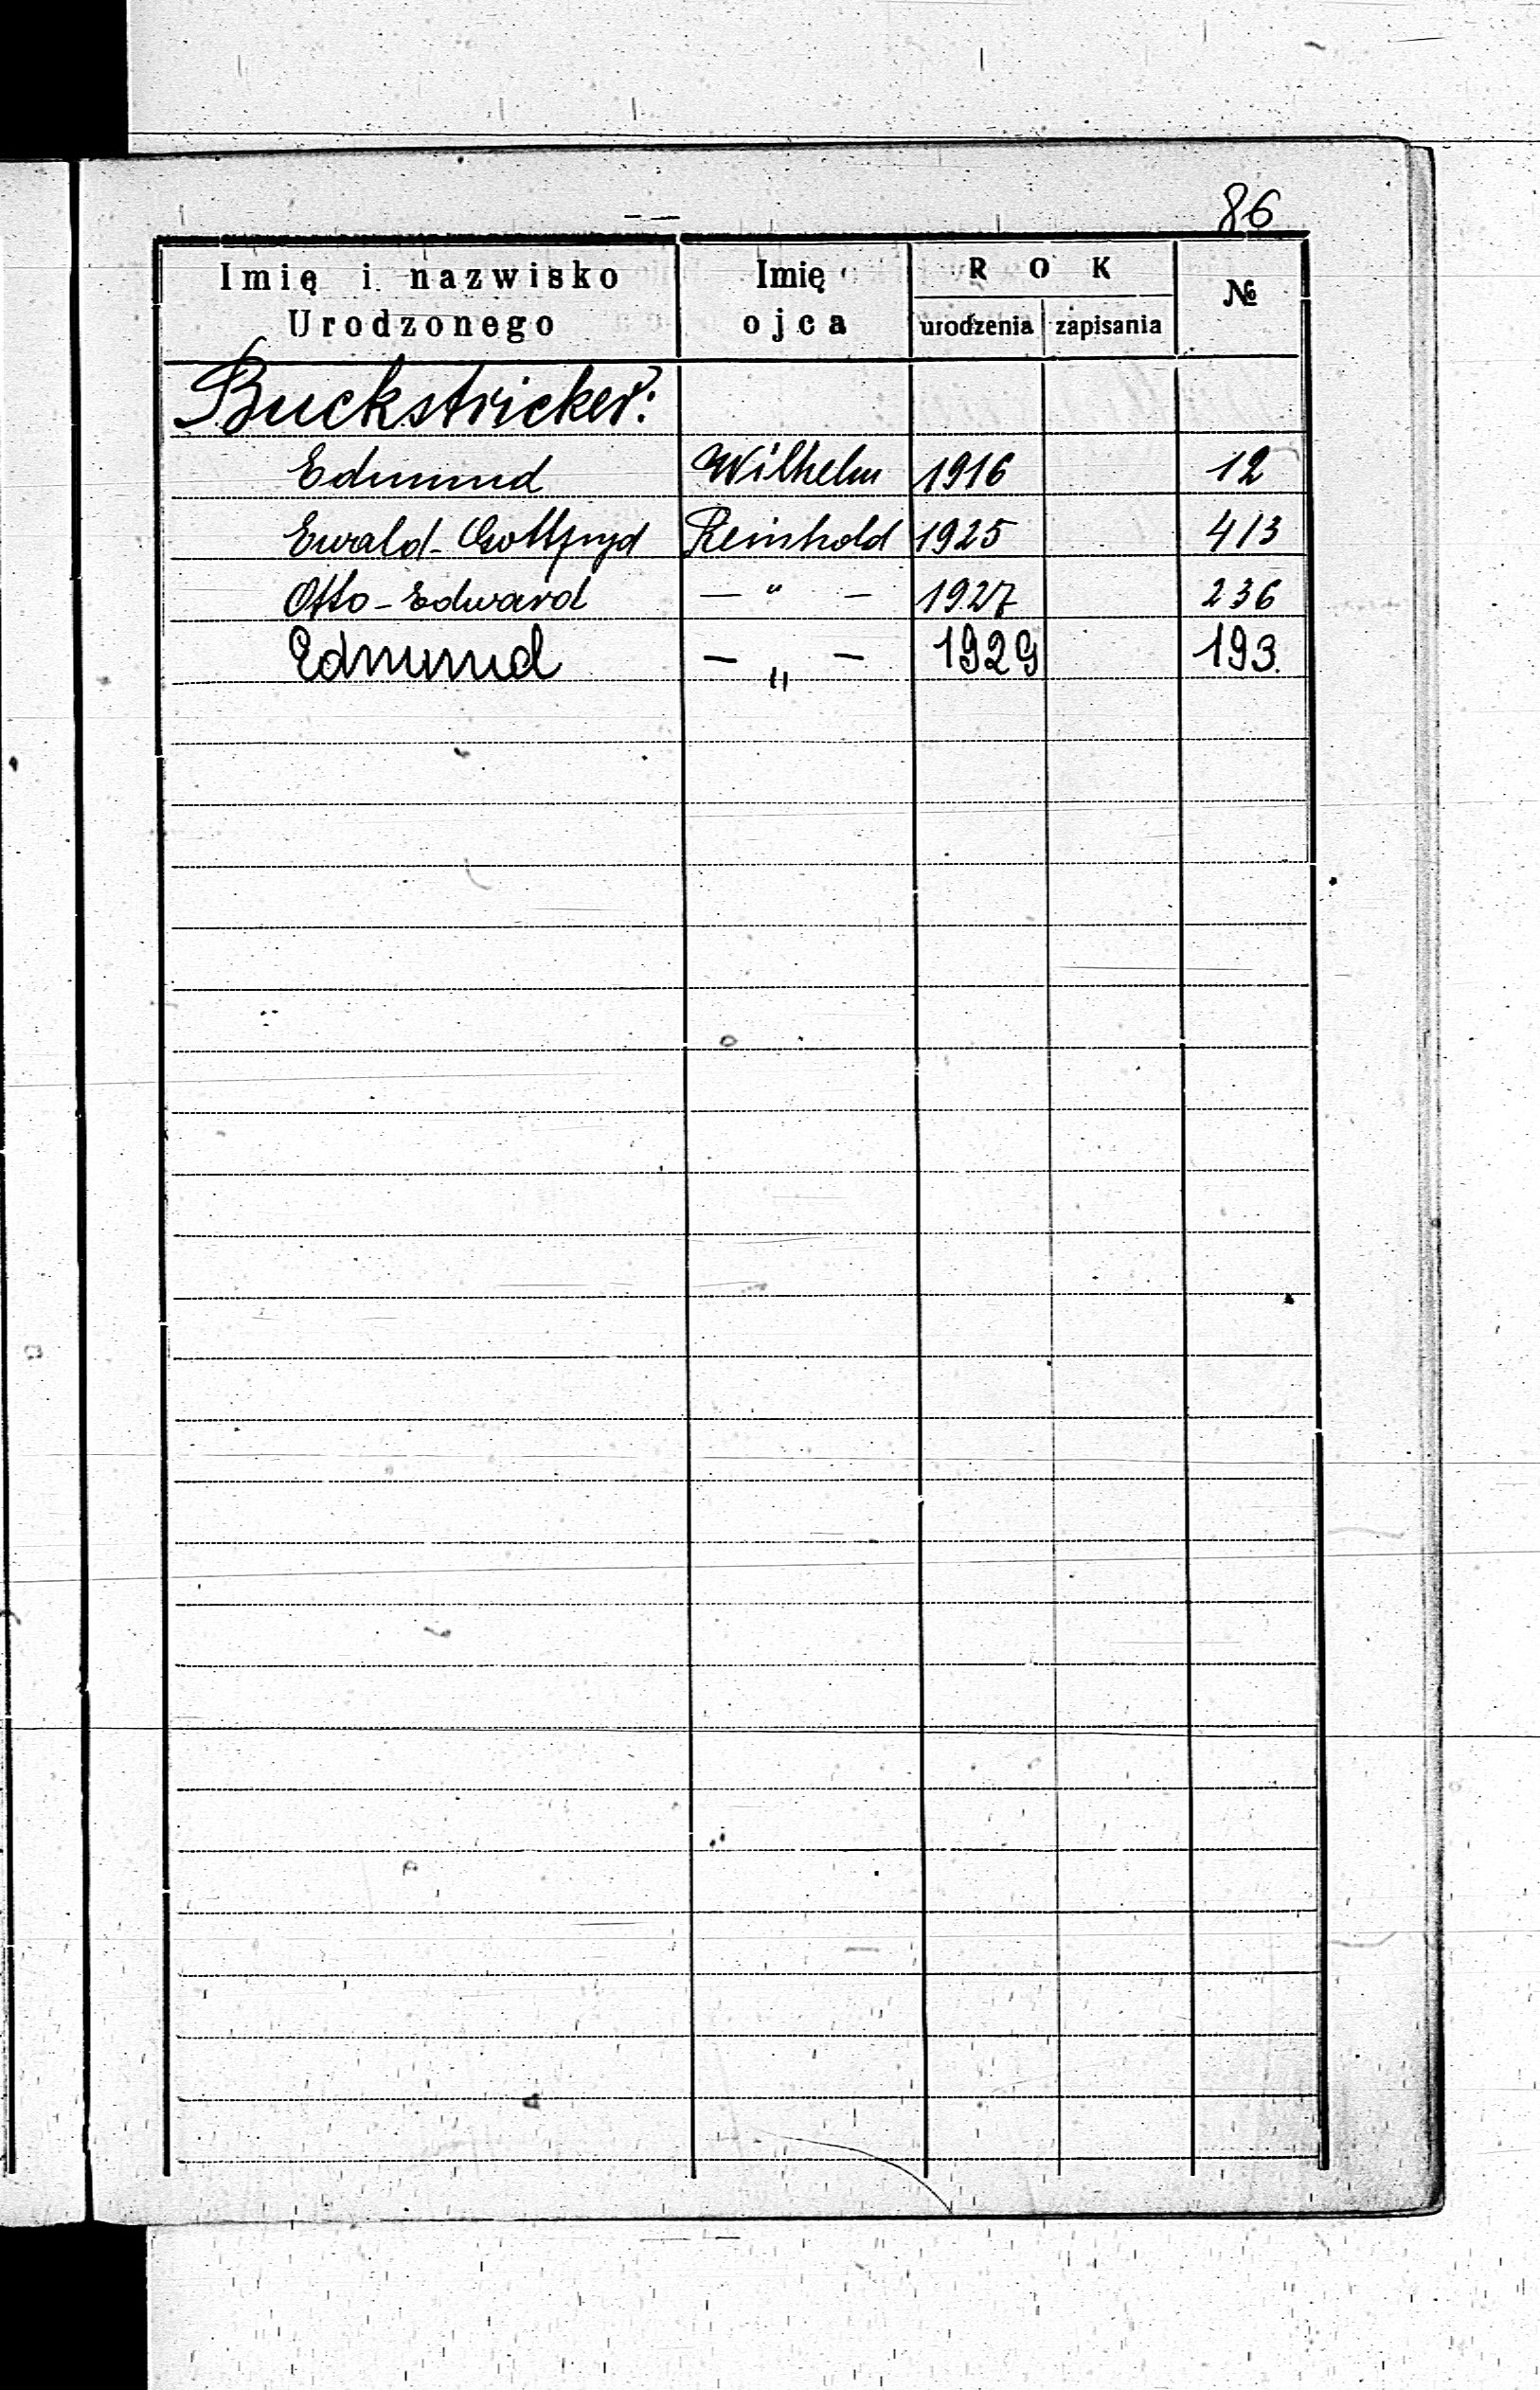 86
Imię i nazwisko Urodzonego Imię ojca ROK urodzenia zapisania №
Buckstricker:
Edmund Wilhelm 1916 12
Ewald-Gottfryd Reinhold 1925 413
Otto-Edward — " — 1927 236
Edmund — „ — 1929 193.